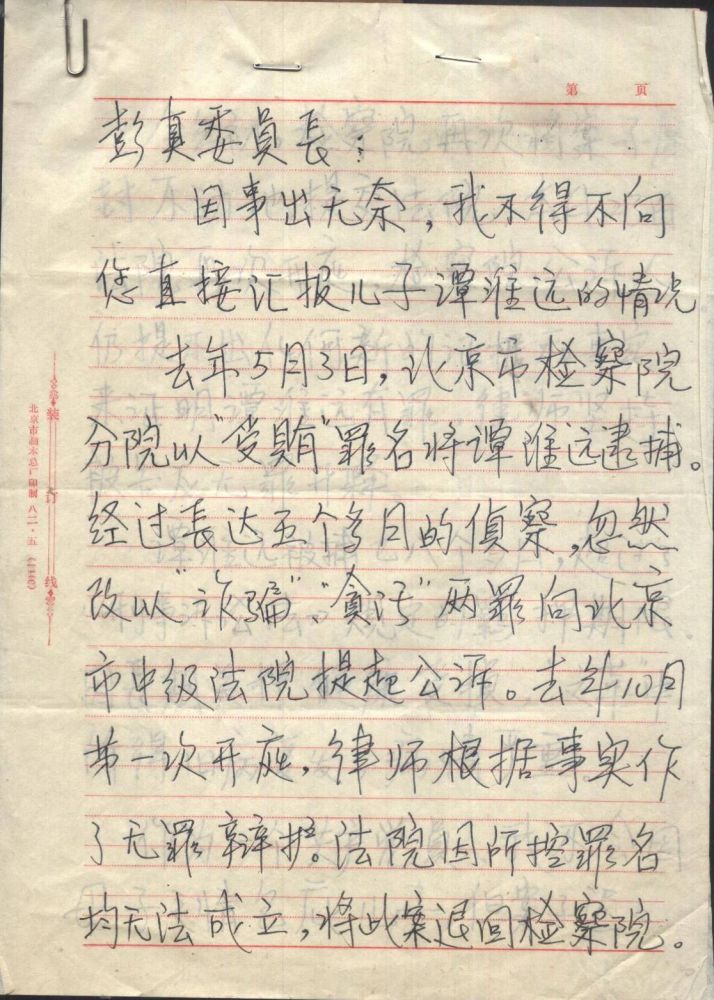 第 页
彭真委員長：
因事出无奈，我不得不向
您直接汇报儿子谭淮远的情况
去年5月3日，北京市检察院
分院以“受賄”罪名将谭淮远逮捕。
经过长达五个多月的偵察，忽然
改以“诈骗”、“貪污”两罪向北京
市中级法院提起公诉。去年10月
第一次开庭，律师根据事实作
了无罪辯护。法院因所控罪名
均无法成立，将此案退回检察院。
装 订 线
北京市 印制 八二·五